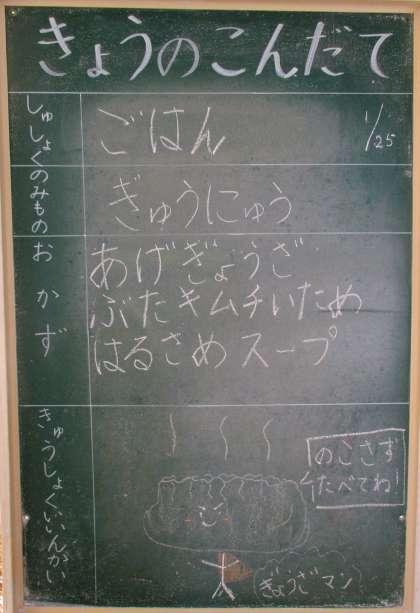 きょうのこんだて
しゅしょく
ごはん
1/25
のみもの
ぎゅうにゅう
おかず
あげぎょうざ
ぶたキムチいため
はるさめスープ
きゅうしょくいいんかい
のこさず
たべてね
ぎょうざマン